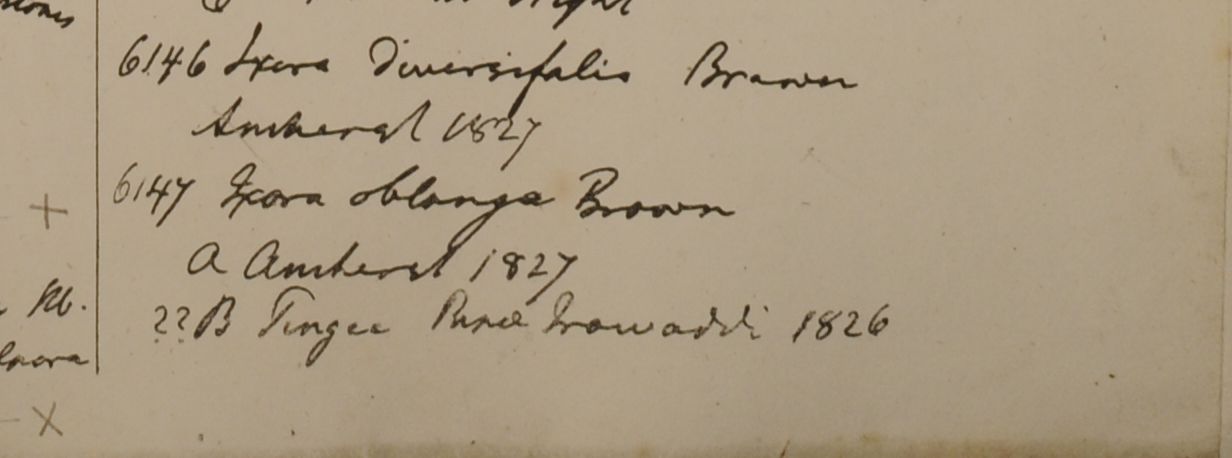 6146 Ixora diversifolia Brown
Amherst 1827
6147 Ixora oblonga Brown
A Amherst 1827
??B Irawaddi 1826
Rb.